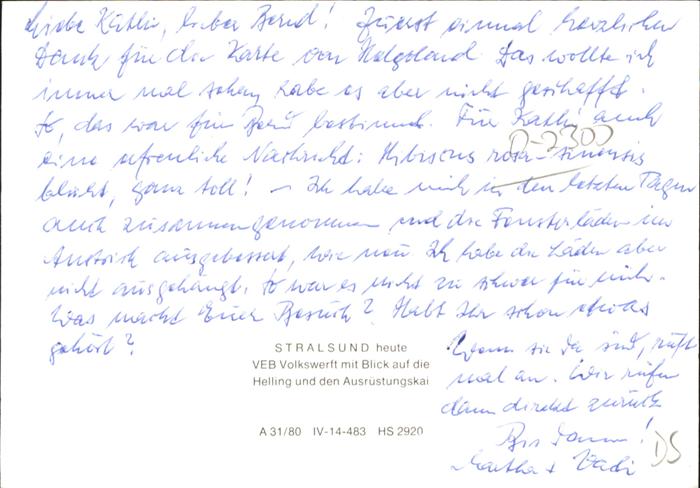 Liebe Käthi, lieber Bernd! Zuerst einmal herzlichen
Dank für die Karte von Helgoland. Das wollte ich
immer mal sehen, habe es aber nicht geschafft.
So, das war für Bernd bestimmt. Für Käthi auch
eine erfreuliche Nachricht: Hibiscus rosa-sinensis
D-2300
blüht, ganz toll! – Ich habe mich in den letzten Tagen
auch zusammengenommen und die Fensterläden im
Anstrich ausgebessert, wie neu. Ich habe die Läden aber
nicht ausgehängt. So war es nicht zu schwer für mich.
Was macht Euer Besuch? Habt Ihr schon etwas
gehört?
Wenn sie da sind, ruft
mal an. Wir rufen
dann direkt zurück
Bis dann!
Martha +
DS
STRALSUND heute
VEB Volkswerft mit Blick auf die
Helling und den Ausrüstungskai
A 31/80 IV-14-483 HS 2920